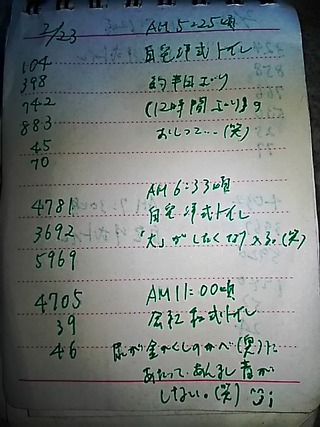 2/23 AM 5:25頃
104 自宅洋式トイレ
398 約半日ぶり
742 (12時間ぶり)の
883 おしって…(笑)
45
70
AM 6:33頃
4781 自宅洋式トイレ
3692 「大」がしたくなり入る。(笑)
5969
4705 AM 11:00頃
39 会社和式トイレ
46 尿が金かくしのかべ(奥)に
あたって、あんまし音が
しない。(笑)